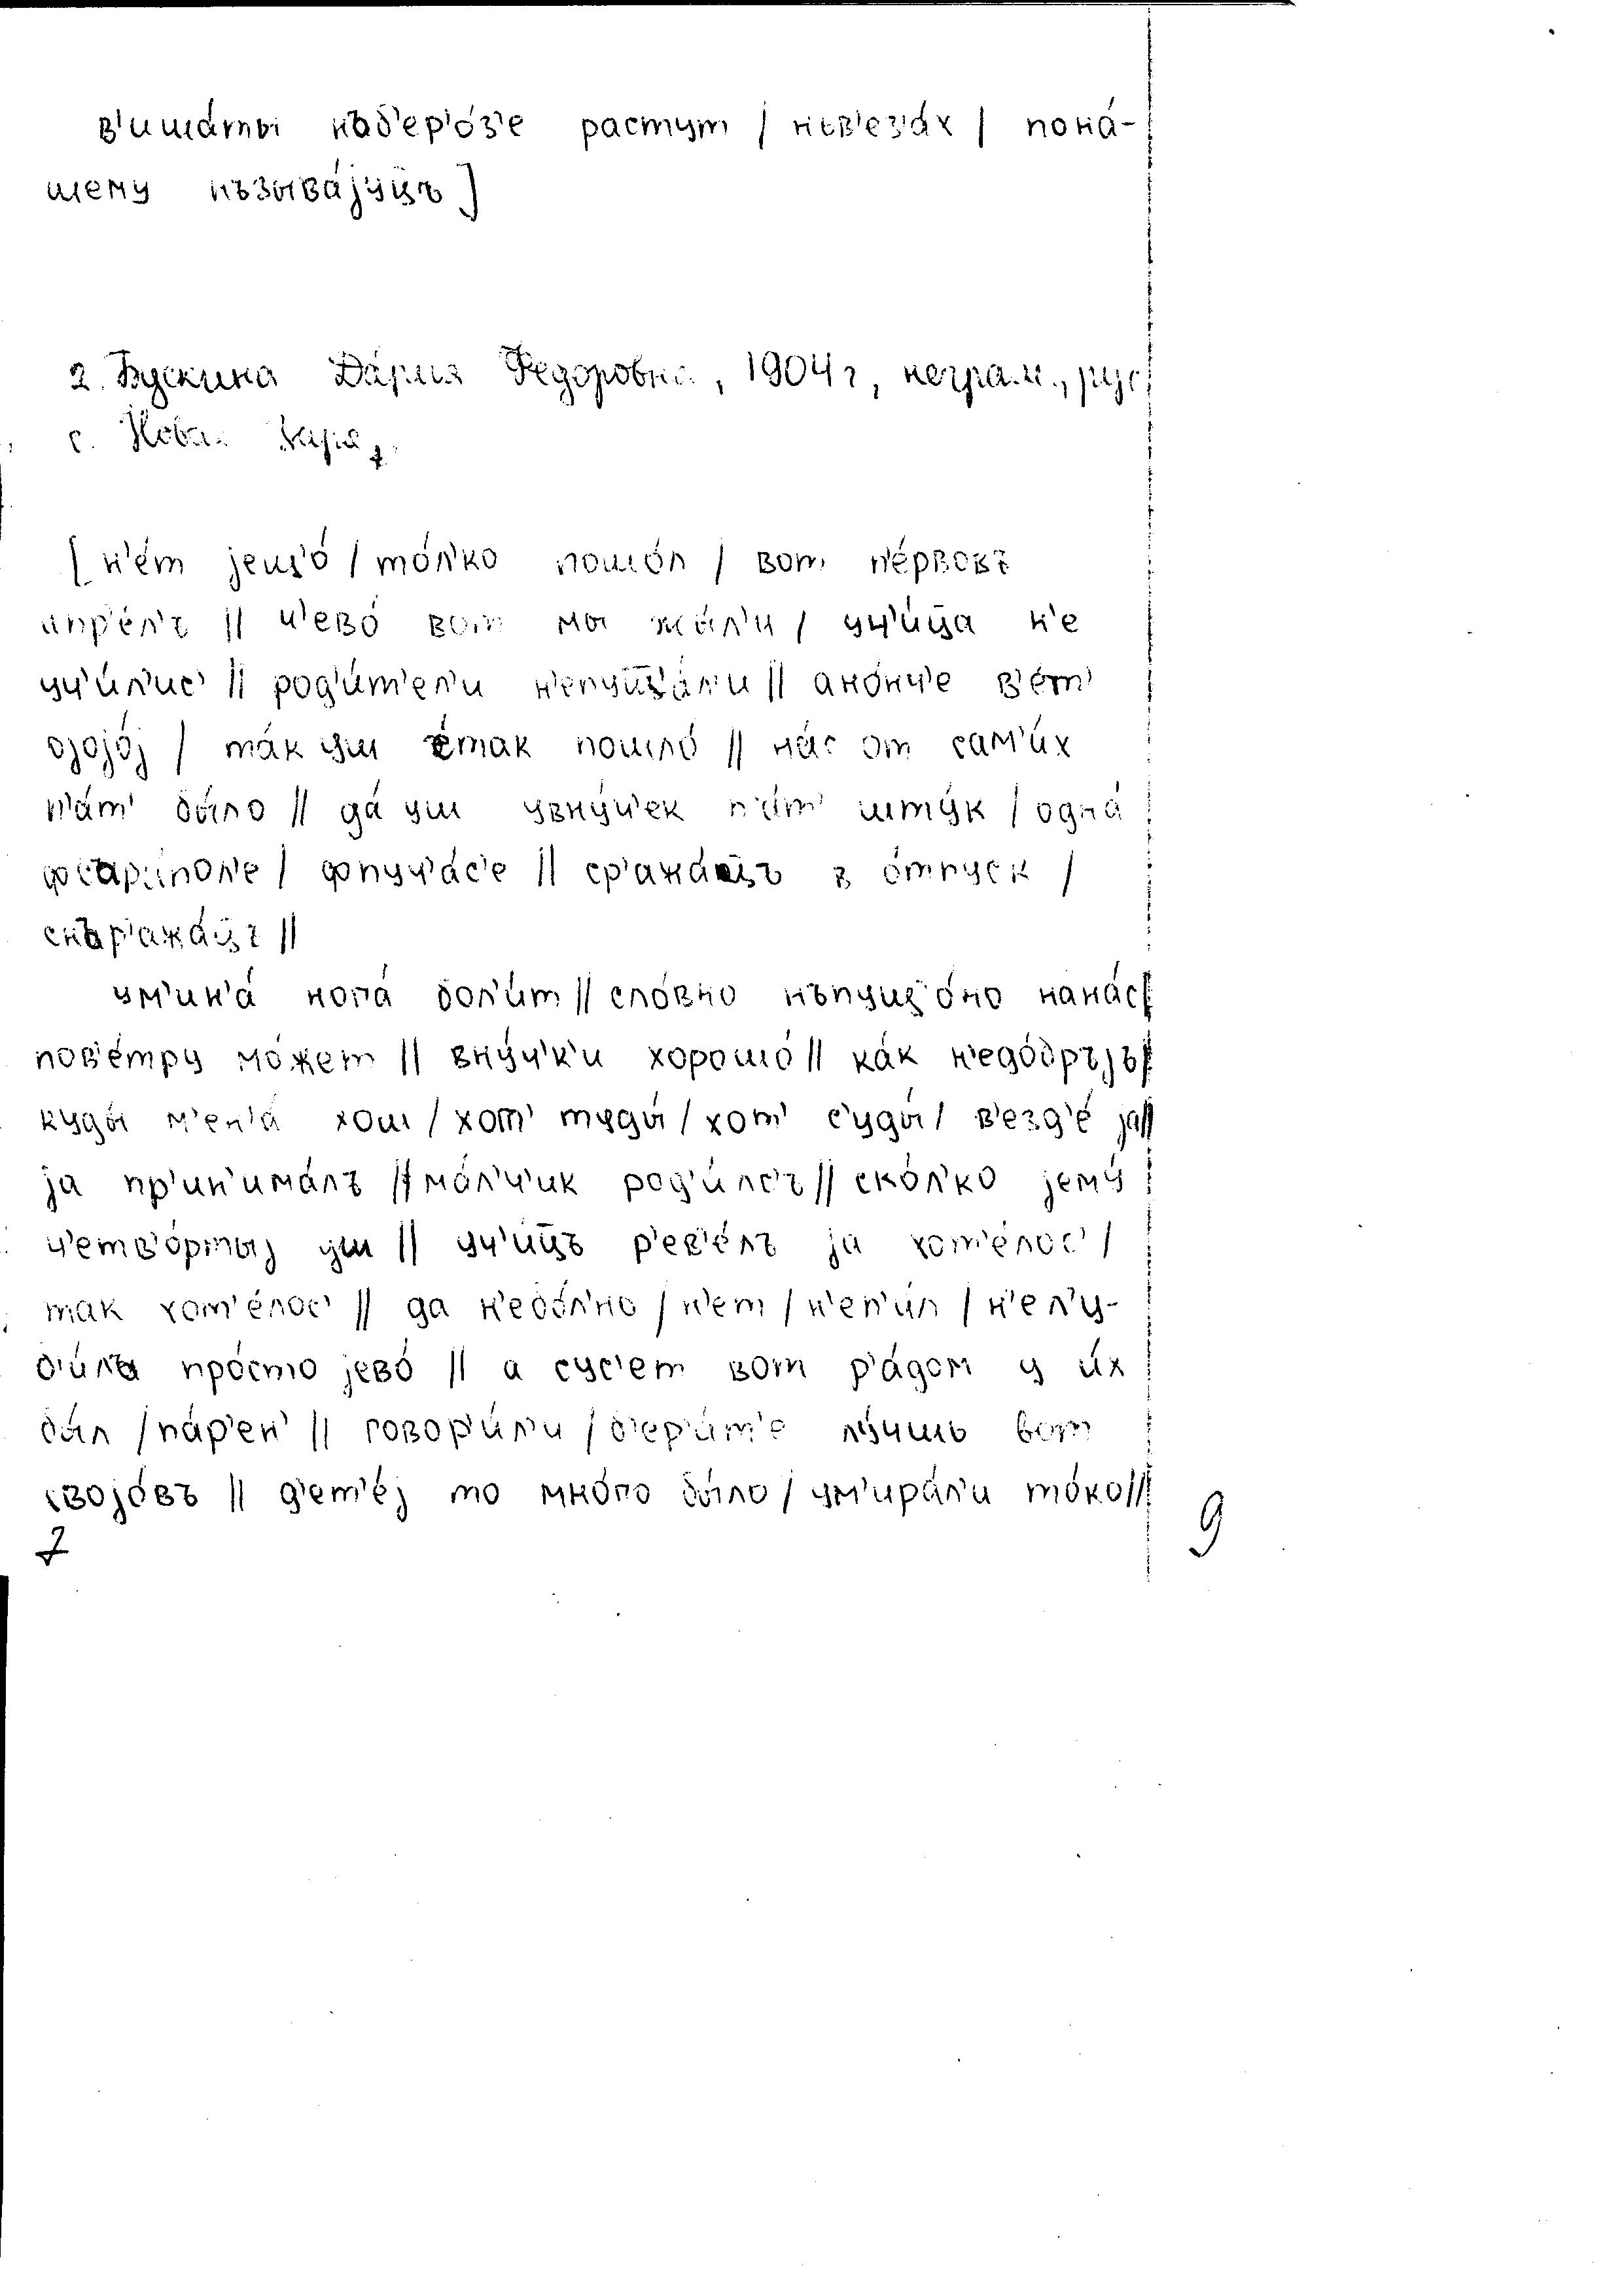 в'иша́ты нъб'ер'о́з'е растут / нъв'ез'а́х / пона́-
шему нъзыва́јуц̄ъ ]
2. Бускина Да́рия Федоровна, 1904 г, неграм., рус
с. Новая
[ н'е́т јешш'о́ / то́л'ко пошо́л / вот п'е́рвовъ
апр'е́л'ъ // ч'ево́ вот мы жы́л'и / уч'и́ц̄а н'е
уч'и́л'ис' // род'и́т'ел'и н'епушш'а́л'и // ано́нч'е в'е́т'
ојојо́ј / та́к уш е́так пошло́ // на́с от сам'и́х
п'а́т' бы́ло // да́ уш увну́ч'ек п'а́т' шту́к / одна́
фсар'а́пол'е / фпуч'а́с'е // ср'ажа́ц̄ъ в о́тпуск /
снър'ажа́ц̄ъ //
ум'ин'а́ нога́ бол'и́т // сло́вно нъпушш'о́но нана́с /
пов'е́тру мо́жет // вну́ч'к'и хорошо́ // ка́к н'едо́бръјъ /
куды́ м'ен'а́ хош / хот' туды́ / хот' с'уды́ / в'езд'е́ ја //
ја пр'ин'има́лъ // ма́л'ч'ик род'и́лс'ъ // ско́л'ко јему́
ч'етв'о́ртыј уш // уч'и́ц̄ъ р'ев'е́лъ ја хот'е́лос' /
так хот'е́лос' // да н'ебо́л'но / н'ет / н'еп'и́л / н'ел'у-
б'и́лъ про́сто јево́ // а сус'ет вот р'а́дом у и́х
бы́л / па́р'ен' // говор'и́л'и / б'ер'и́т'е лу́чшъ вот
својо́въ // д'ет'е́ј то мно́го бы́ло / ум'ира́л'и то́ко //
7
9